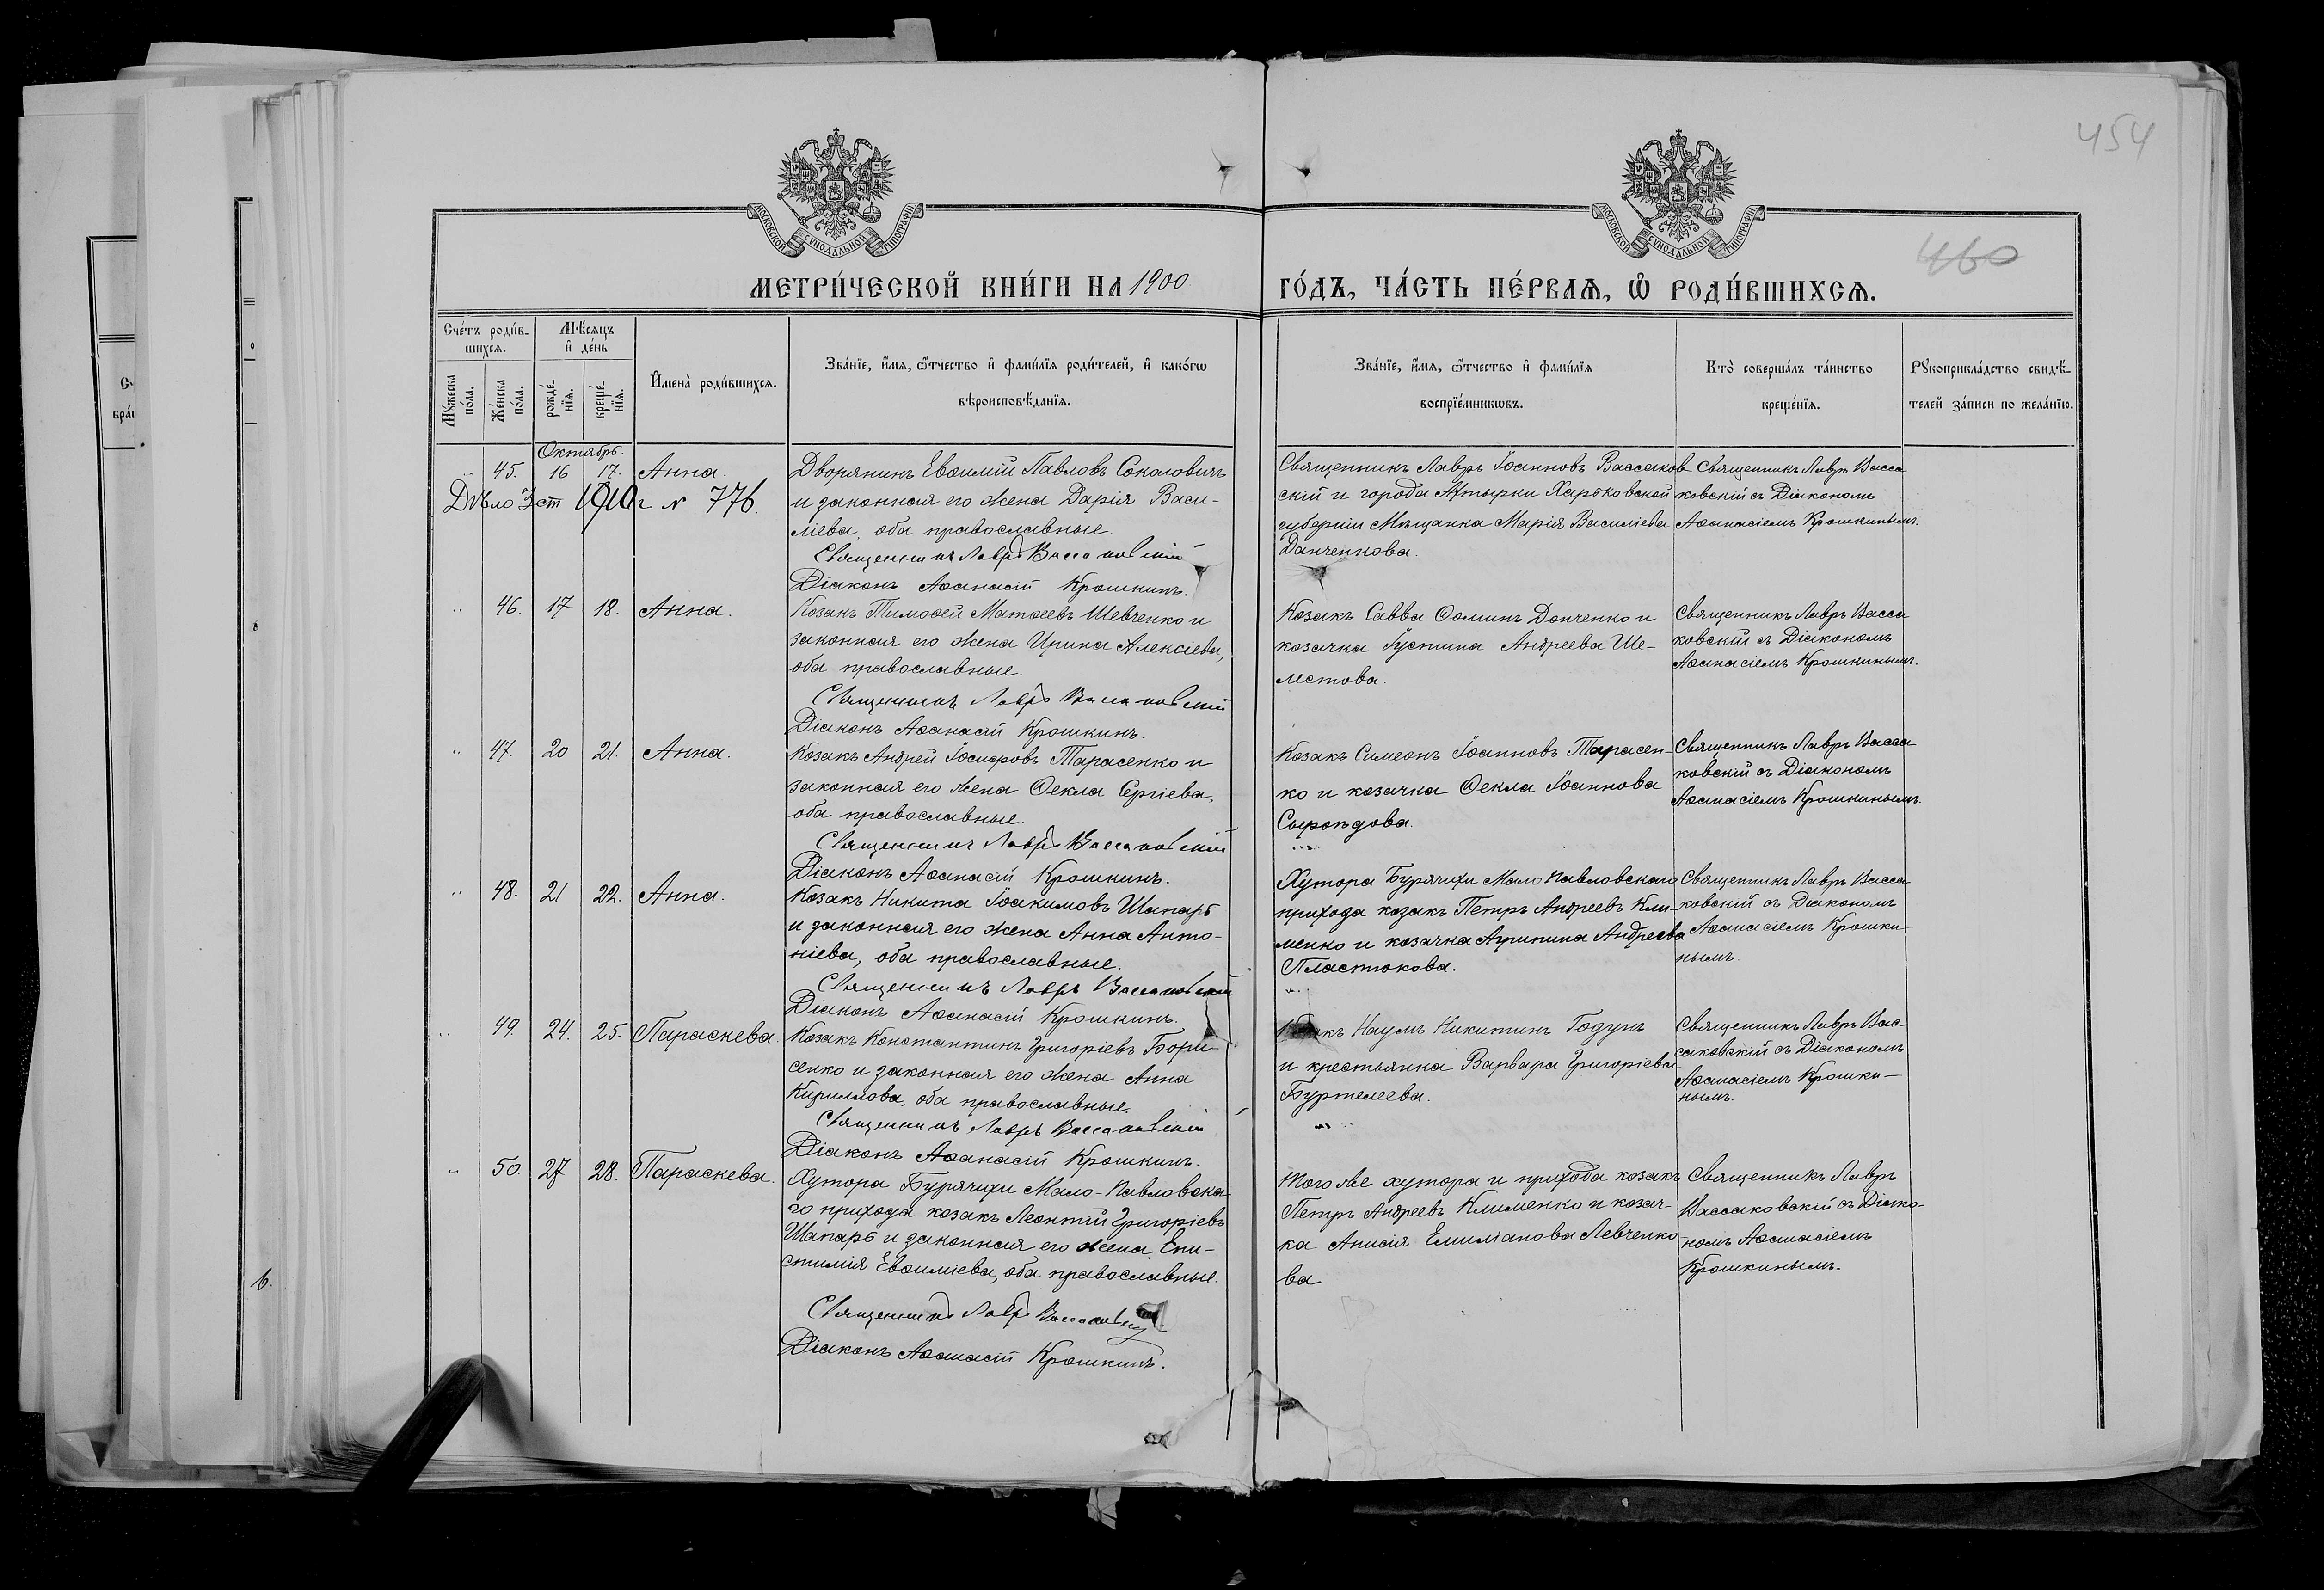 454
МОСКОВСКОЙ СѴНОДАЛЬНОЙ ТИПОГРАФІИ
МОСКОВСКОЙ СѴНОДАЛЬНОЙ ТИПОГРАФІИ
460
МЕТРИ́ЧЕСКОЙ КНИ́ГИ НА 1900 ГО́ДЪ, ЧА́СТЬ ПЕ́РВАѦ, Ѡ҆ РОДИ́ВШИХСѦ.
Сче́тъ роди́в-
шихсѧ.
Мꙋжеска
по́ла.
Же́нска
по́ла.
Мѣ́сѧцъ
и҆ де́нь
рожде́-
нїѧ.
креще́-
нїѧ.
И҆мена̀ роди́вшихсѧ.
Зва́нїе, и҆́мѧ, ѻ҆́тчество и҆ фами́лїѧ роди́телей, и҆ како́гѡ
вѣроисповѣ́данїѧ.
Зва́нїе, и҆́мѧ, ѻ҆́тчество и҆ фами́лїѧ
воспрїе́мникѡвъ.
Кто̀ соверша́лъ та́инство
креще́нїѧ.
Рꙋкоприкла́дство свидѣ́-
телей за́писи по жела́нїю.
Октябрь.
" 45. 16 17. Анна.
Дѣло 3 ст 1910 г № 776.
Дворянинъ Евѳимій Павловъ Соколовичъ
и законная его жена Дарія Васи-
ліева, оба православные.
Священникъ Лавръ Вассаковскій
Діаконъ Аѳанасій Крошкинъ.
Священникъ Лавръ Іоанновъ Вассаков-
скій и города Ахтырки Харьковской
губерніи Мѣщанка Марія Василіева
Данченкова.
Священникъ Лавръ Васса
ковскій съ Діакономъ
Аѳанасіемъ Крошкинымъ.
" 46. 17 18. Анна.
Козакъ Тимоѳей Матѳеевъ Шевченко и
законная его жена Ирина Алексіева,
оба православные.
Священникъ Лавръ Вассаковскій
Діаконъ Аѳанасій Крошкинъ.
Козакъ Савва Ѳоминъ Донченко и
козачка Іустина Андреева Ше-
лестова.
Священникъ Лавръ Васса
ковскій съ Діакономъ
Аѳанасіемъ Крошкинымъ.
" 47. 20 21. Анна.
Козакъ Андрей Іосифовъ Тарасенко и
законная его жена Ѳекла Сергіева,
оба православные.
Священникъ Лавръ Вассаковскій
Діаконъ Аѳанасій Крошкинъ.
Козакъ Симеонъ Іоанновъ Тарасен-
ко и козачка Ѳекла Іоаннова
Сыроѣдова.
Священникъ Лавръ Васса
ковскій съ Діакономъ
Аѳанасіемъ Крошкинымъ.
" 48. 21 22. Анна.
Козакъ Никита Іоакимовъ Шапарь
и законная его жена Анна Анто-
ніева, оба православные.
Священникъ Лавръ Вассаковскій
Діаконъ Аѳанасій Крошкинъ.
Хутора Бурячихи Мало Павловскаго
прихода козакъ Петръ Андреевъ Кли-
менко и козачка Агрипина Андреева
Пластюкова.
Священникъ Лавръ Васса
ковскій съ Діакономъ
Аѳанасіемъ Крошки
нымъ.
" 49. 24. 25. Параскева.
Козакъ Константинъ Григоріевъ Бори-
сенко и законная его жена Анна
Кириллова, оба православные.
Священникъ Лавръ Вассаковскій
Діаконъ Аѳанасій Крошкинъ.
Козакъ Наумъ Никитинъ Годунъ
и крестьянка Варвара Григоріева
Буртелеева.
Священникъ Лавръ Вас-
саковскій съ Діакономъ
Аѳанасіемъ Крошки-
нымъ.
" 50. 27 28. Параскева.
Хутора Бурячихи Мало-Павловска-
го прихода козакъ Леонтій Григоріевъ
Шапарь и законная его жена Епи-
стимія Евѳиміева, оба православные.
Священникъ Лавръ Вассаковскій
Діаконъ Аѳанасій Крошкинъ.
того же хутора и прихода козакъ
Петръ Андреевъ Клименко и козач-
ка Анисія Емиліанова Левченко-
ва.
Священникъ Лавръ
Вассаковскій съ Діако-
номъ Аѳанасіемъ
Крошкинымъ.